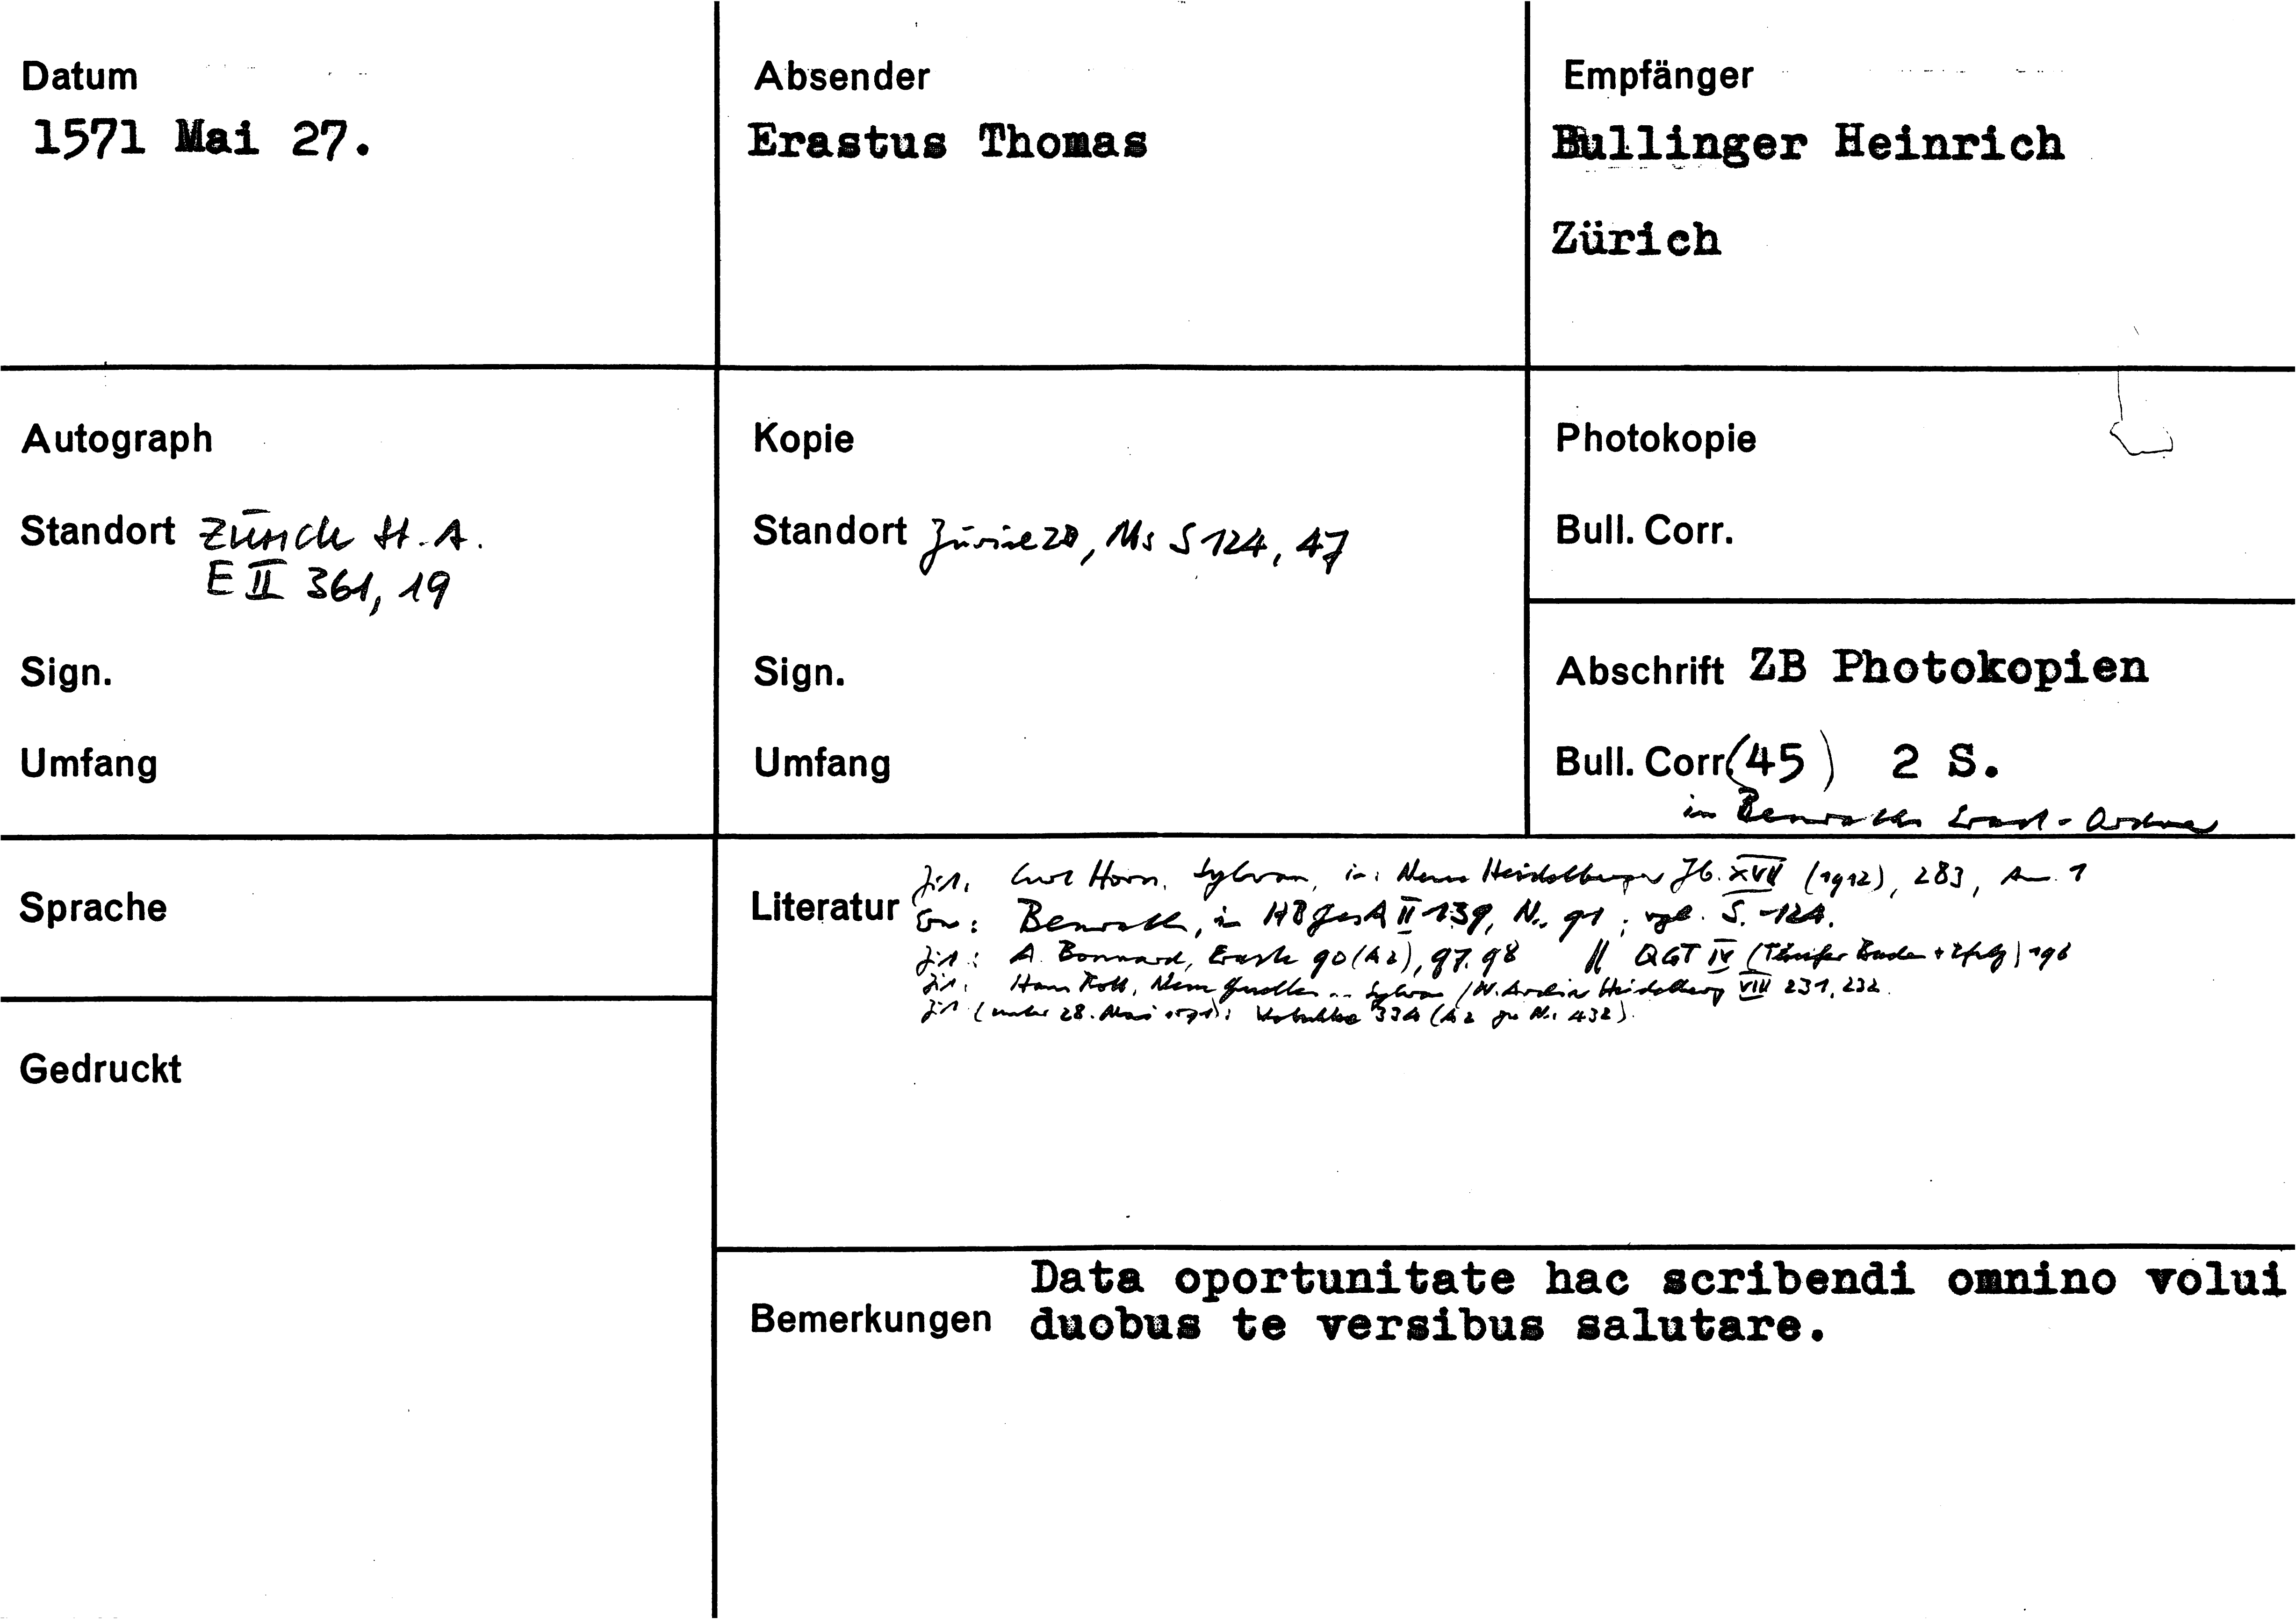 Datum
1571 Mai 27.
Absender
Erastus Thomas
Empfänger
Bullinger Heinrich
Zürich
Autograph
Standort Zürich St.A.
E II 361, 19
Sign.
Umfang
Kopie
Standort Zürich ZB, Ms S 124, 47
Sign.
Umfang
Photokopie
Bull. Corr.
Abschrift ZB Photokopien
Bull. Corr. (45) 2 S.
in Benraths Erast-
Sprache
Gedruckt
Literatur
Zit. Curt Horn, Sylvan, in: Neue Heidelberger Jb. XVII (1912), 283, Anm. 1
Erw: Benrath, in HBGesA II 139, Nr. 91; vgl. S. 124.
Zit: A. Bonnard, Eraste 90 (A2), 97. 98 || QGT IV (Täufer Baden + Pfalz) 196
Zit. Hans Rott, Neue Quellen .. Sylvan / N. Archiv Heidelberg VIII 231, 232.
Zit (unter 28. Mai 1571): 334 (A2 zu Nr. 432).
Bemerkungen
Data oportunitate hac scribendi omnino volui
duobus te versibus salutare.